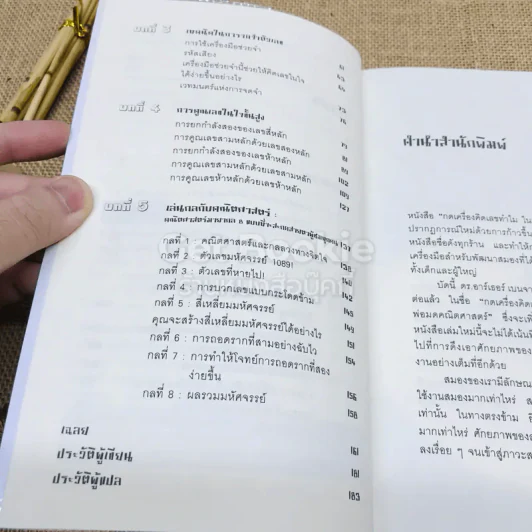 บทที่ 3
การใช้เครื่องมือช่วยจำ
รหัสเสียง
เครื่องมือช่วยจำนี้ช่วยให้คิดเลขในใจ
ได้ง่ายขึ้นอย่างไร
เวทมนตร์แห่งการจดจำ
บทที่ 4 การคูณเลขในใจขั้นสูง
การยกกำลังสองของเลขสี่หลัก
การคูณเลขสามหลักด้วยเลขสองหลัก
การยกกำลังสองของเลขห้าหลัก
การคูณเลขสามหลักด้วยเลขสามหลัก
การคูณเลขห้าหลักด้วยเลขห้าหลัก
บทที่ 5 เล่นกลกับคณิตศาสตร์ :
กลที่ 1 : คณิตศาสตร์และกลลวงทางจิตใจ
กลที่ 2 : ตัวเลขมหัศจรรย์ 1089! 138
กลที่ 3 : ตัวเลขที่หายไป! 140
กลที่ 4 : การบวกเลขแบบกระโดดข้าม 142
กลที่ 5 : สี่เหลี่ยมมหัศจรรย์ 145
คุณจะสร้างสี่เหลี่ยมมหัศจรรย์ได้อย่างไร 149
กลที่ 6 : การถอดรากที่สามอย่างฉับไว 151
กลที่ 7 : การทำให้โจทย์การถอดรากที่สอง 154
ง่ายขึ้น
กลที่ 8 : ผลรวมมหัศจรรย์ 156
158
เฉลย
ประวัติผู้เขียน 161
ประวัติผู้แปล 181
183
คำนำสำนักพิมพ์
หนังสือ "กดเครื่องคิดเลขทำไม ใน
ปรากฏการณ์ใหม่ด้วยการก้าวขึ้น
หนังสือชื่อดังทุกร้าน และทำให้
เครื่องมือสำหรับพัฒนาสมองที่ได้
ทั้งเด็กและผู้ใหญ่
บัดนี้ ดร.อาร์เธอร์ เบนจา
ต่อแล้ว ในชื่อ "กดเครื่องคิดเ
พ่อมดคณิตศาสตร์" ซึ่งจะเพิ่
หนังสือเล่มใหม่นี้จะไม่ได้เน้นที่
ไปที่การดึงเอาศักยภาพของ
งานอย่างเต็มที่อีกด้วย
สมองของเรามีลักษณ
ใช้งานสมองมากเท่าไหร่ ส
เท่านั้น ในทางตรงข้าม
มากเท่าไหร่ ศักยภาพของ
ลงเรื่อย ๆ จนเข้าสู่ภาวะส